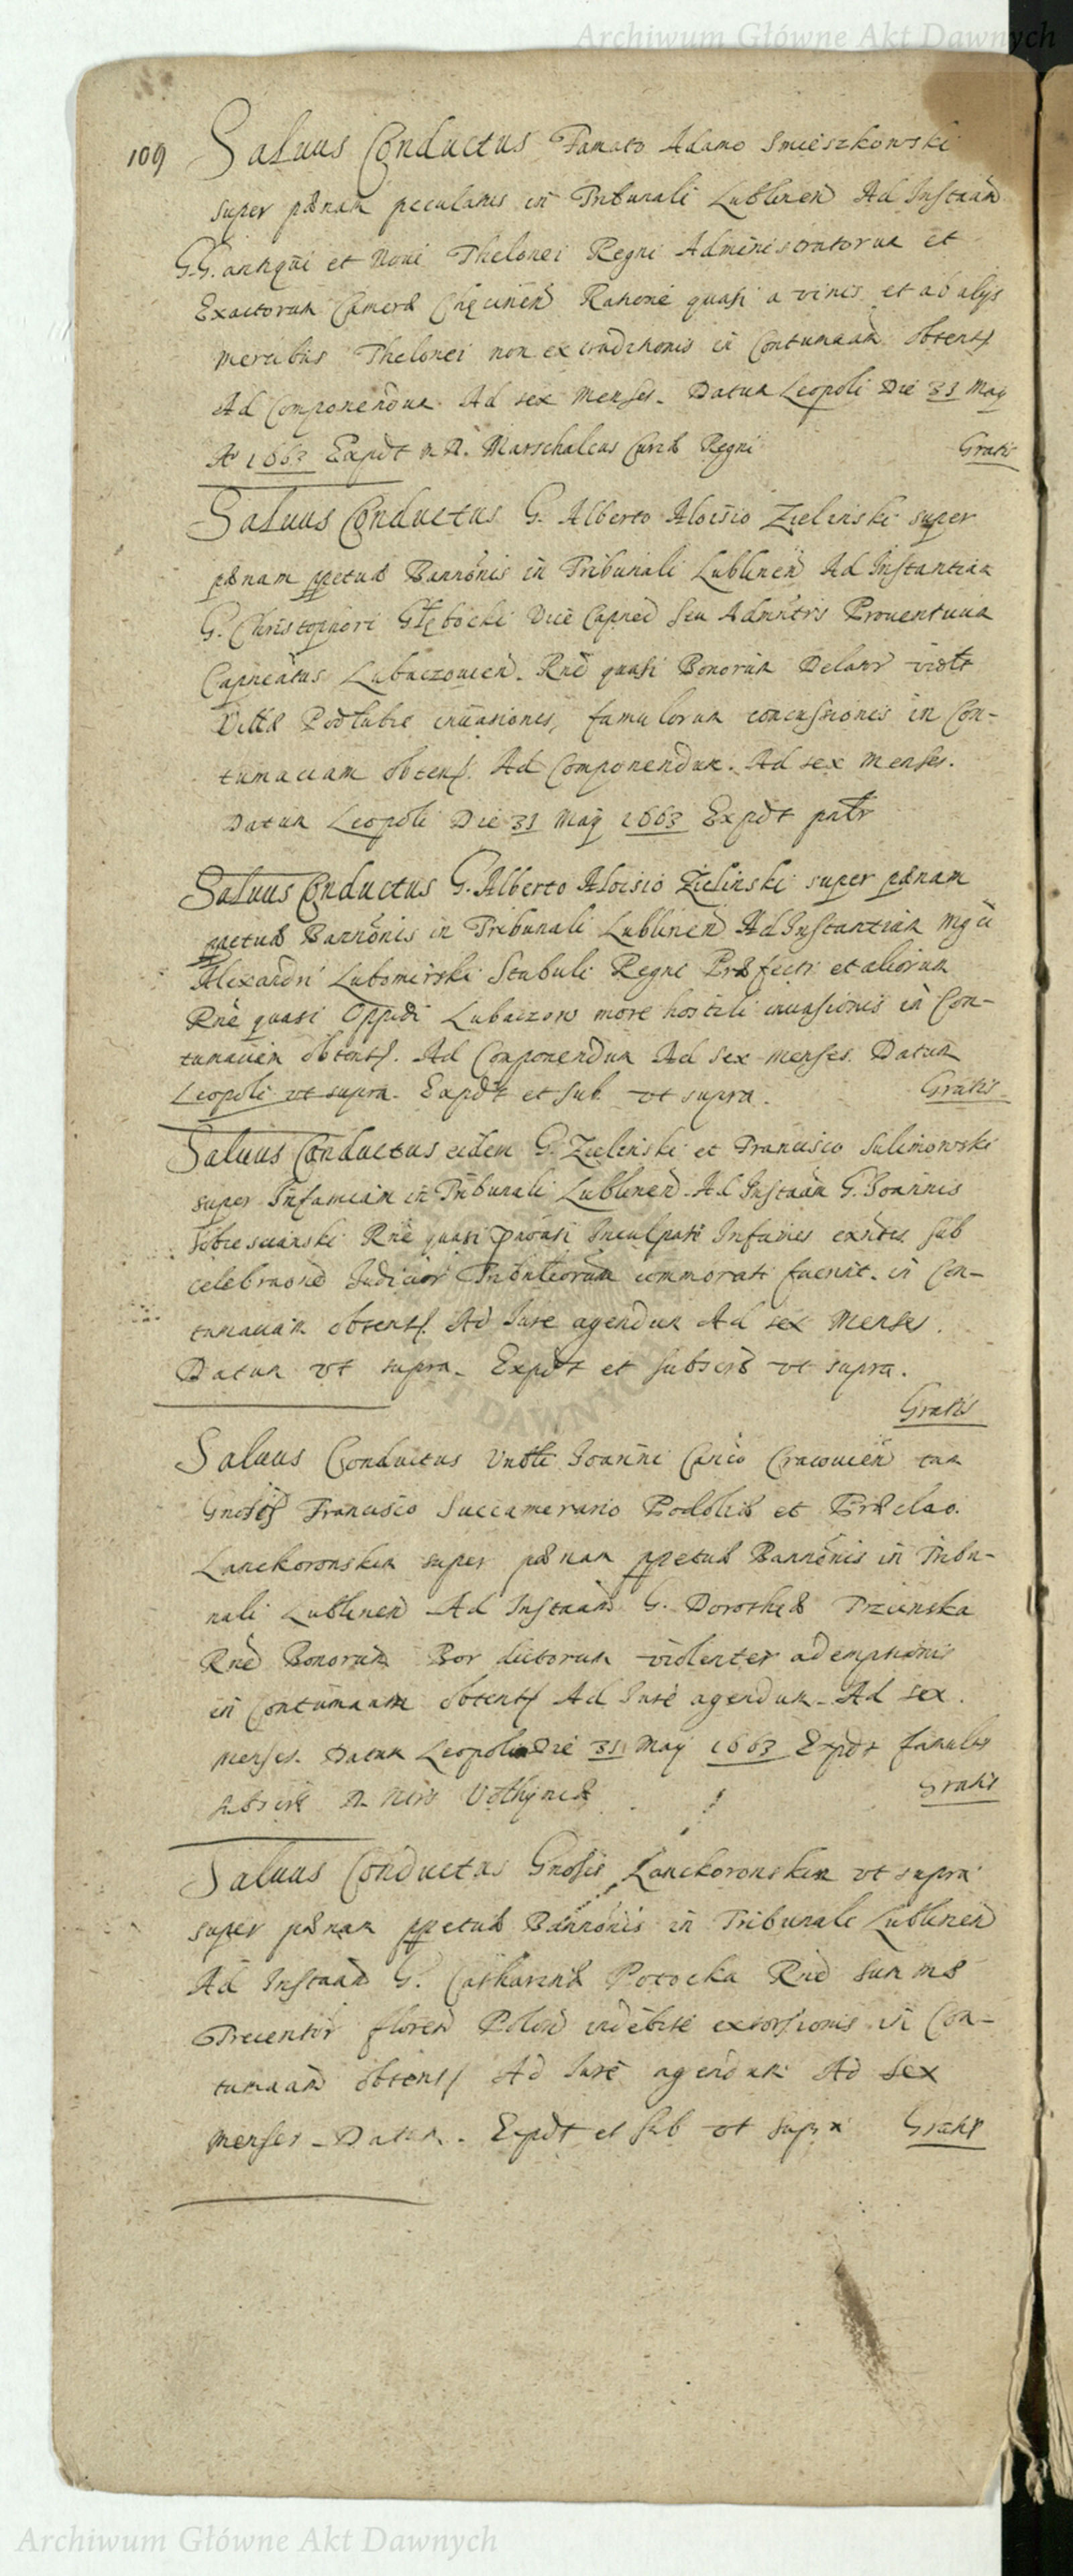 Archiwum Główne Akt Dawnych
109
Saluus Conductus Famato Adamo Smieszkowski
super pænam peculatus in Tribunali Lublinen Ad Instaan
G.G. antiqui et Noui Thelonei Regni Administratorum et
Exactorum Cameræ Racione quasi a vinis et ab alijs
mercibus Thelonei non extradichonis in Contumaciam obtent
Ad Componendum. Ad sex Menses. Datum Leopoli Die 31 Maij
Aº 1663 Expdt M. D. Marschalcus Curiæ Regni
Gratis
Saluus Conductus G. Alberto Aloisio Zielinski super
pænam ppetuæ Bannonis in Tribunali Lublinen Ad Instantiam
G. Christophori Głębocki Vice Capnei seu Admntris Prouentuum
Capneatus Lubaczouien. Rne quasi Bonorum violt
Villæ Podlubie inuasiones, famulorum concussiones in Con-
tumaciam obtent. Ad Componendum. Ad sex Menses.
Datum Leopoli Die 31 Maij 1663 Expdt
Saluus Conductus G. Alberto Aloisio Zielinski super pænam
ppetuæ Bannonis in Tribunali Lublinen Ad Instantiam Mgci
Alexandri Lubomirski Stabuli Regni Præfecti et aliorum
Rne quasi Oppidi Lubaczow more hostili inuasionis in Con-
tumaciam obtent. Ad Componendum Ad sex menses. Datum
Leopoli vt supra. Expdt et sub vt supra.
Gratis
Saluus Conductus eidem G. Zielinski et Francisco Sulimowski
super Infamiam in Tribunali Lublinen. Ad Instaan G. Joannis
Sobiesciański Rne quasi Inculpati Infames exntes sub
celebraone Judicior commorati fuerint. in Con-
tumaciam obtent. Ad Jure agendum Ad sex Menses.
Datum vt supra. Expdt et subscrb vt supra.
Gratis
Saluus Conductus Joanni Canco Cracouien tam
Gnosis Francisco Succamerario Podoliæ et
Lanckoronskim super pænam ppetuæ Bannonis in Tribu-
nali Lublinen Ad Instaan G. Dorotheæ
Rne Bonorum Bor dictorum violenter ademptionis
in Contumaciam obtent Ad Jure agendum. Ad sex
menses. Datum Leopoli Die 31 Maij 1663 Expdt
subscrb
Gratis
Saluus Conductus Gnosis Lanckoronskim vt supra
super pænam ppetuæ Bannonis in Tribunali Lublinen
Ad Instaan G. Catharinæ Potocka Rne summæ
Trecentor floren Polon indebite extorsionis in Con-
tumaciam obtent Ad Jure agendum Ad sex
menses. Datum. Expdt et sub vt supra
Gratis
Archiwum Główne Akt Dawnych